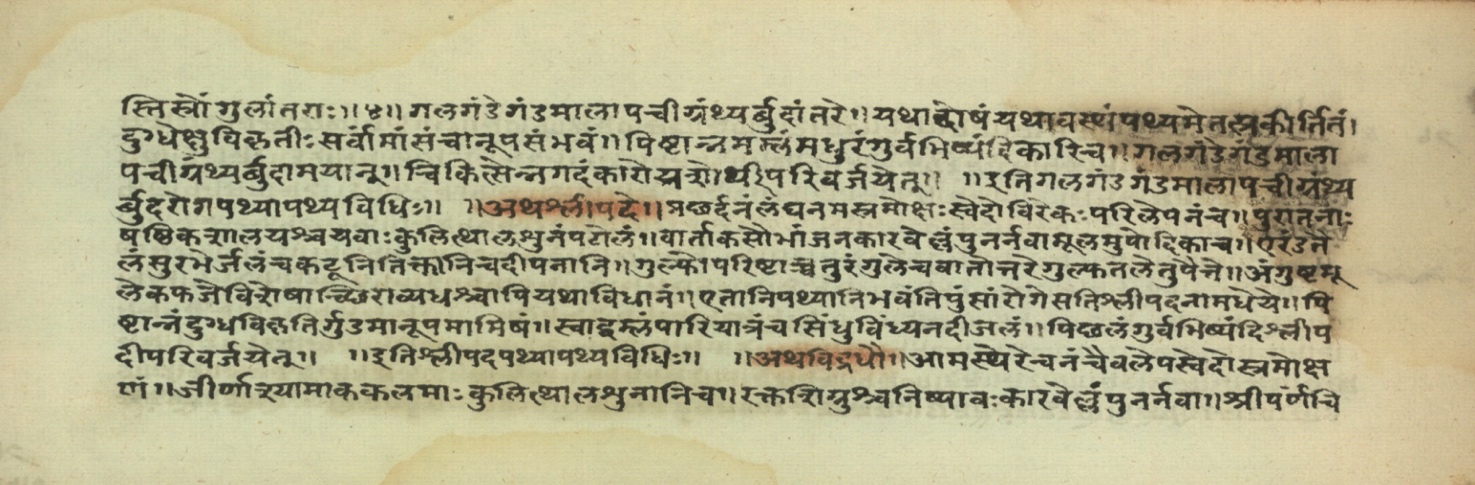 स्तिस्त्रोंगुलांतराः॥४॥गलगंडेगंडमालापचीग्रंथ्यर्बुदांतरे॥यथादोषंयथावस्थंपथ्यमेतत्प्रकीर्तितं।
दुग्धेक्षुविकृतीःसर्वामांसंचानूपसंभवं॥पिष्टान्नमम्लंमधुरंगुर्वभिष्यंदिकारिच॥गलगंडेगंडमाला
पचीग्रंथ्यर्बुदामयान्॥चिकित्सन्नगदंकारोयशोर्थीपरिवर्जयेत्॥ ॥इतिगलगंडगंडमालापचीग्रंथ्य
र्बुदरोगपथ्यापथ्यविधिः॥ ॥अथश्लीपदे॥प्रछर्दनंलंघनमस्रमोक्षःस्वेदोविरेकःपरिलेपनंच॥पुरातनाः
षष्ठिकशालयश्चयवाःकुलित्थालशुनंपटोलं॥वार्ताकसौभांजनकारवेल्लंपुनर्नवामूलमुपोदिकाच॥एरंडते
लंसुरभेर्जलंचकटूनितिक्तानिचदीपनानि॥गुल्फोपरिष्टाच्चतुरंगुलेचवातोत्तरेगुल्फतलेतुपैत्ते॥अंगुष्टमू
लेकफजेविशेषाच्छिराव्यधश्चापियथाविधानं॥एतानिपथ्यानिभवंतिपुंसांरोगेसतिश्लीपदनामधेये॥पि
ष्टान्नंदुग्धविकृतिर्गुडमानूपमामिषं॥स्वाद्वम्लंपारियात्रंचसिंधुविंध्यनदीजलं॥पिछलंगुर्वभिष्यंदिश्लीप
दीपरिवर्जयेत्॥ ॥इतिश्लीपदपथ्यापथ्यविधिः॥ ॥अथविद्रधौ॥आमस्थेरेचनंचैवलेपस्वेदोस्रमोक्ष
णं॥जीर्णाश्यामाककलमाःकुलित्थालशुनानिच॥रक्तशिग्रुश्चनिष्पावःकारवेल्लंपुनर्नवा॥श्रीपर्णचि